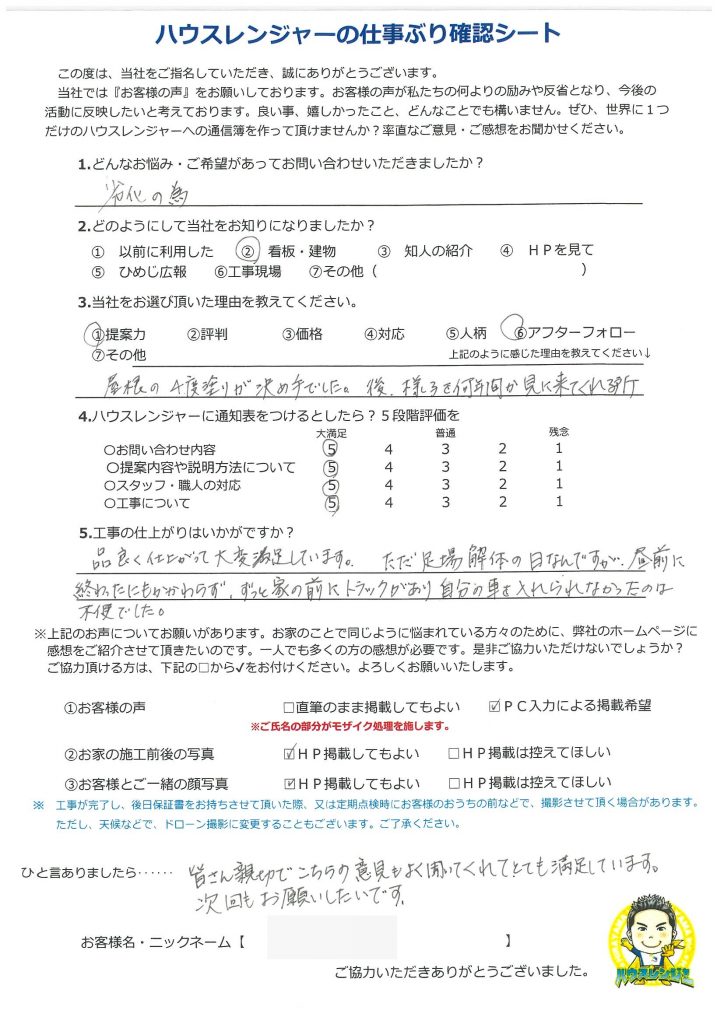 ハウスレンジャーの仕事ぶり確認シート
この度は、当社をご指名していただき、誠にありがとうございます。
当社では『お客様の声』をお願いしております。お客様の声が私たちの何よりの励みや反省となり、今後の
活動に反映したいと考えております。良い事、嬉しかったこと、どんなことでも構いません。ぜひ、世界に１つ
だけのハウスレンジャーへの通信簿を作って頂けませんか？率直なご意見・ご感想をお聞かせください。
1.どんなお悩み・ご希望があってお問い合わせいただきましたか？
劣化の為
2.どのようにして当社をお知りになりましたか？
① 以前に利用した ② 看板・建物 ③ 知人の紹介 ④ ＨＰを見て
⑤ ひめじ広報 ⑥工事現場 ⑦その他（ ）
3.当社をお選び頂いた理由を教えてください。
①提案力 ②評判 ③価格 ④対応 ⑤人柄 ⑥アフターフォロー
⑦その他 上記のように感じた理由を教えてください↓
屋根の4度塗りが決め手でした。後、様子を何年間か見に来てくれる所
4.ハウスレンジャーに通知表をつけるとしたら？５段階評価を
大満足 普通 残念
〇お問い合わせ内容 5 4 3 2 1
〇提案内容や説明方法について 5 4 3 2 1
〇スタッフ・職人の対応 5 4 3 2 1
〇工事について 5 4 3 2 1
5.工事の仕上がりはいかがですか？
品良く仕上がって大変満足しています。 ただ足場解体の日なんですが、昼前に
終わったにもかかわらず、ずっと家の前にトラックがあり自分の車を入れられなかったのは
不便でした。
※上記のお声についてお願いがあります。お家のことで同じように悩まれている方々のために、弊社のホームページに
感想をご紹介させて頂きたいのです。一人でも多くの方の感想が必要です。是非ご協力いただけないでしょうか？
ご協力頂ける方は、下記の□から✓をお付けください。よろしくお願いいたします。
①お客様の声 □直筆のまま掲載してもよい ☑ＰＣ入力による掲載希望
※ご氏名の部分がモザイク処理を施します。
②お家の施工前後の写真 ☑ＨＰ掲載してもよい □ＨＰ掲載は控えてほしい
③お客様とご一緒の顔写真 ☑ＨＰ掲載してもよい □ＨＰ掲載は控えてほしい
※ 工事が完了し、後日保証書をお持ちさせて頂いた際、又は定期点検時にお客様のおうちの前などで、撮影させて頂く場合があります。
ただし、天候などで、ドローン撮影に変更することもございます。ご了承ください。
ひと言ありましたら‥‥‥ 皆さん親切でこちらの意見もよく聞いてくれてとても満足しています。
次回もお願いしたいです。
お客様名・ニックネーム【 】
ご協力いただきありがとうございました。
ハウスレンジャー